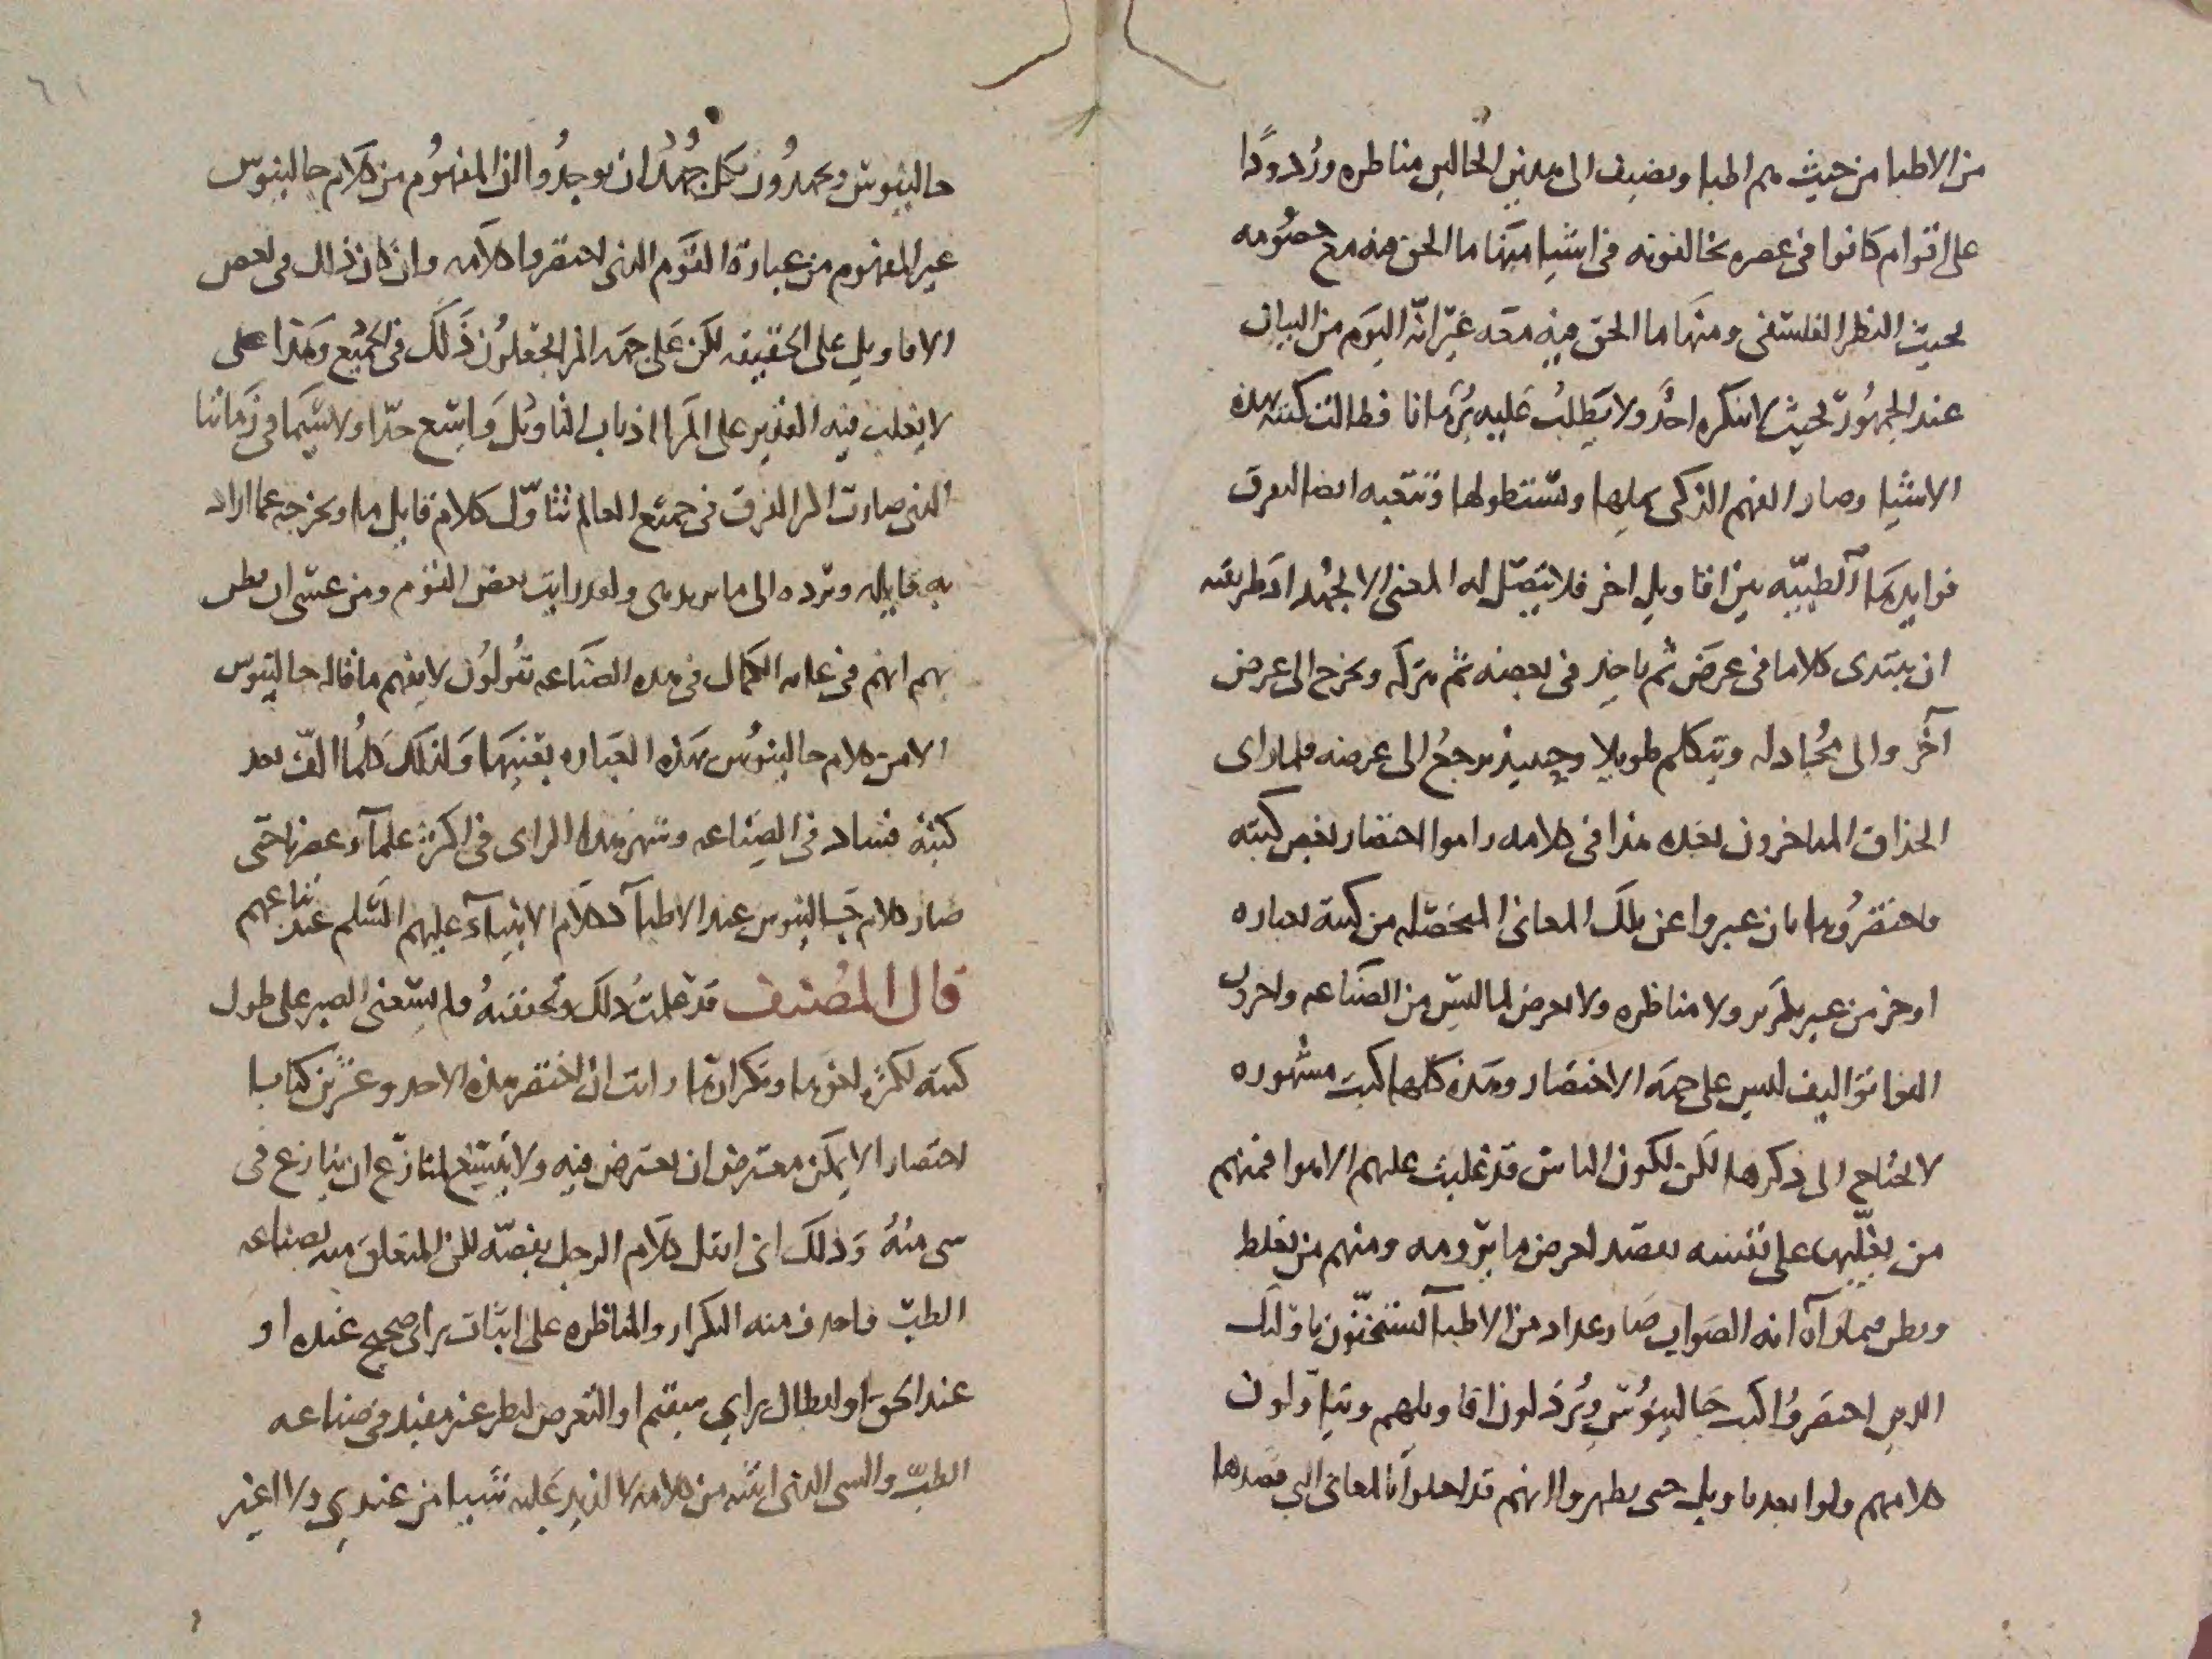 من الاطبا من حيث هم اطبا ويضيف الى هذين الحالين مناظره ورُدودًا
على اقوام كانوا فى عصره يخالفونه فى اشيا منها ما الحق فيه مع خصومه
بحيث النظر الفلسفى ومنها ما الحق فيه معه غير انّه اليوم من البيان
عند الجمهور بحيث لا ينكره احد ولا يطلب عليه برهانا فطالت كتبه بهذه
الاشيا وصار الفهم الذكى يملها ويستطولها وتتعبه ايضا لتفرق
فوايدها الطبيّه بين اقاويل اخر فلا يتصل له المعنى الا بجهد اذ طريقته
ان يبتدى كلاما فى غرض ثم ياخذ فى بعضه ثم يتركه ويخرج الى غرض
آخر والى مجادله ويتكلم طويلا وحينيذ يرجع الى غرضه فلما راى
الحذاق المتاخرون بعده هذا فى كلامه راموا اختصار بعض كتبه
فاختصروها بان عبروا عن تلك المعانى المحصّله من كتبه بعباره
اوجز من غير تكرير ولا مناظره ولا تعرض لما ليس من الصناعه واخرون
الفوا تواليف ليس على جهة الاختصار وهذه كلها كتب مشهوره
لا يحتاج الى ذكرها لكن لكون الناس قد غلبت عليهم الاهوا فمنهم
من يغلّبها على نفسه بقصد لغرض ما يرومه ومنهم من يغلط
ويظن فيما رآه انه الصواب صار عداد من الاطبا يستخفّون باوليك
الذين اختصروا كتب جالينوس ويرذلون اقاويلهم ويتاوّلون
كلامهم ولو ابعد تاويل حتى يظهروا انهم قد اخلوا بالمعانى التى قصدها
٦١
جالينوس ويجهدون بكل جهد ان يوجدوا ان المفهوم من كلام جالينوس
غير المفهوم من عبارة القوم الذى اختصروا كلامه وان كان ذلك فى بعض
الاقاويل على الحقيقه لكن على جهة المرا يجعلون ذلك فى الجميع وهذا على
لا يغلب فيه القدير على المرا اذ باب التاويل واسع جدّا ولا سيما فى زماننا
الذى صارت المرا الفرق فى جميع العالم تتاوّل كلام قايل ما ويخرجه عما اراد
به قايله وترده الى ما يريد هى ولقد رايت بعض القوم ومن عسى ان يظن
بهم انهم فى غايه الكمال فى هذه الصناعه يقولون لا يفهم ما قاله جالينوس
الا من كلام جالينوس بهذه العباره بعينها ولذلك كلما الّف بعد
كتبه فساد فى الصناعه وشهر هذا الراى فى اكثر علمآء عصرنا حتى
صار كلام جالينوس عند الاطبآ ككلام الانبيآء عليهم السّلم عند تباعهم
قال المصنف قد علمت ذلك وتحققته ولم يسعنى الصبر على طول
كتبه لكثرة لغوها وتكرارها رايت ان اختصر هذه الاحد وعشرين كتابا
اختصارا لا يمكن معترض ان يعترض فيه ولا يتسع لمنازع ان ينازع فى
شى منه وذلك انى انقل كلام الرجل بنصّه لكن المتعلق منه بصناعه
الطب فاحذف منه التكرار والمناظره على اثبات راى صحيح عنده او
عند الحق او ابطال راى سقيم او التعرض لنظر غير مفيد فى صناعه
الطب والشى الذى اثبته من كلامه لا ازيد عليه شيا من عندى ولا اغير